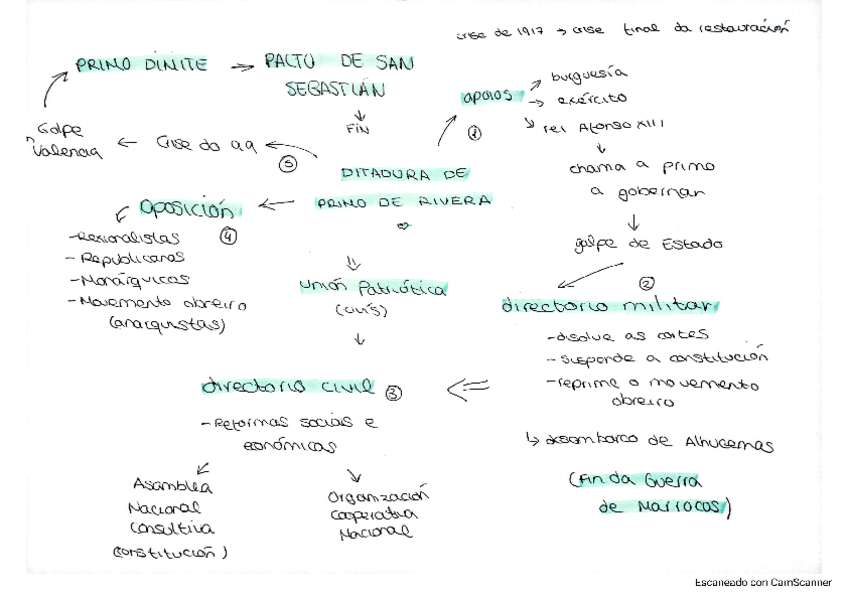 crise de 1917 → crise final da restauración
PRIMO DIMITE → PACTO DE SAN
SEBASTIÁN
↓
FIN
apoios
①
→ burguesía
→ exército
↘ rei Afonso XIII
↓
chama a primo
a gobernar
↓
golpe de Estado
Golpe
Valencia ← Crise do 29 ←
⑤
DITADURA DE
PRIMO DE RIVERA
aposición
④
-Rexionalistas
- Republicanos
-Monárquicos
-Movemento obreiro
(anarquistas)
Unión Patriótica
(civís)
↓
②
directorio militar
-disolve as cortes
- suspende a constitución
-reprime o movemento
obreiro
↳ desembarco de Alhucemas
(Fin da Guerra
de Marrocos)
directorio civil ③
- Reformas sociais e
económicas
Asamblea
Nacional
Consultiva
(constitución)
Organización
Cooperativa
Nacional
Escaneado con CamScanner